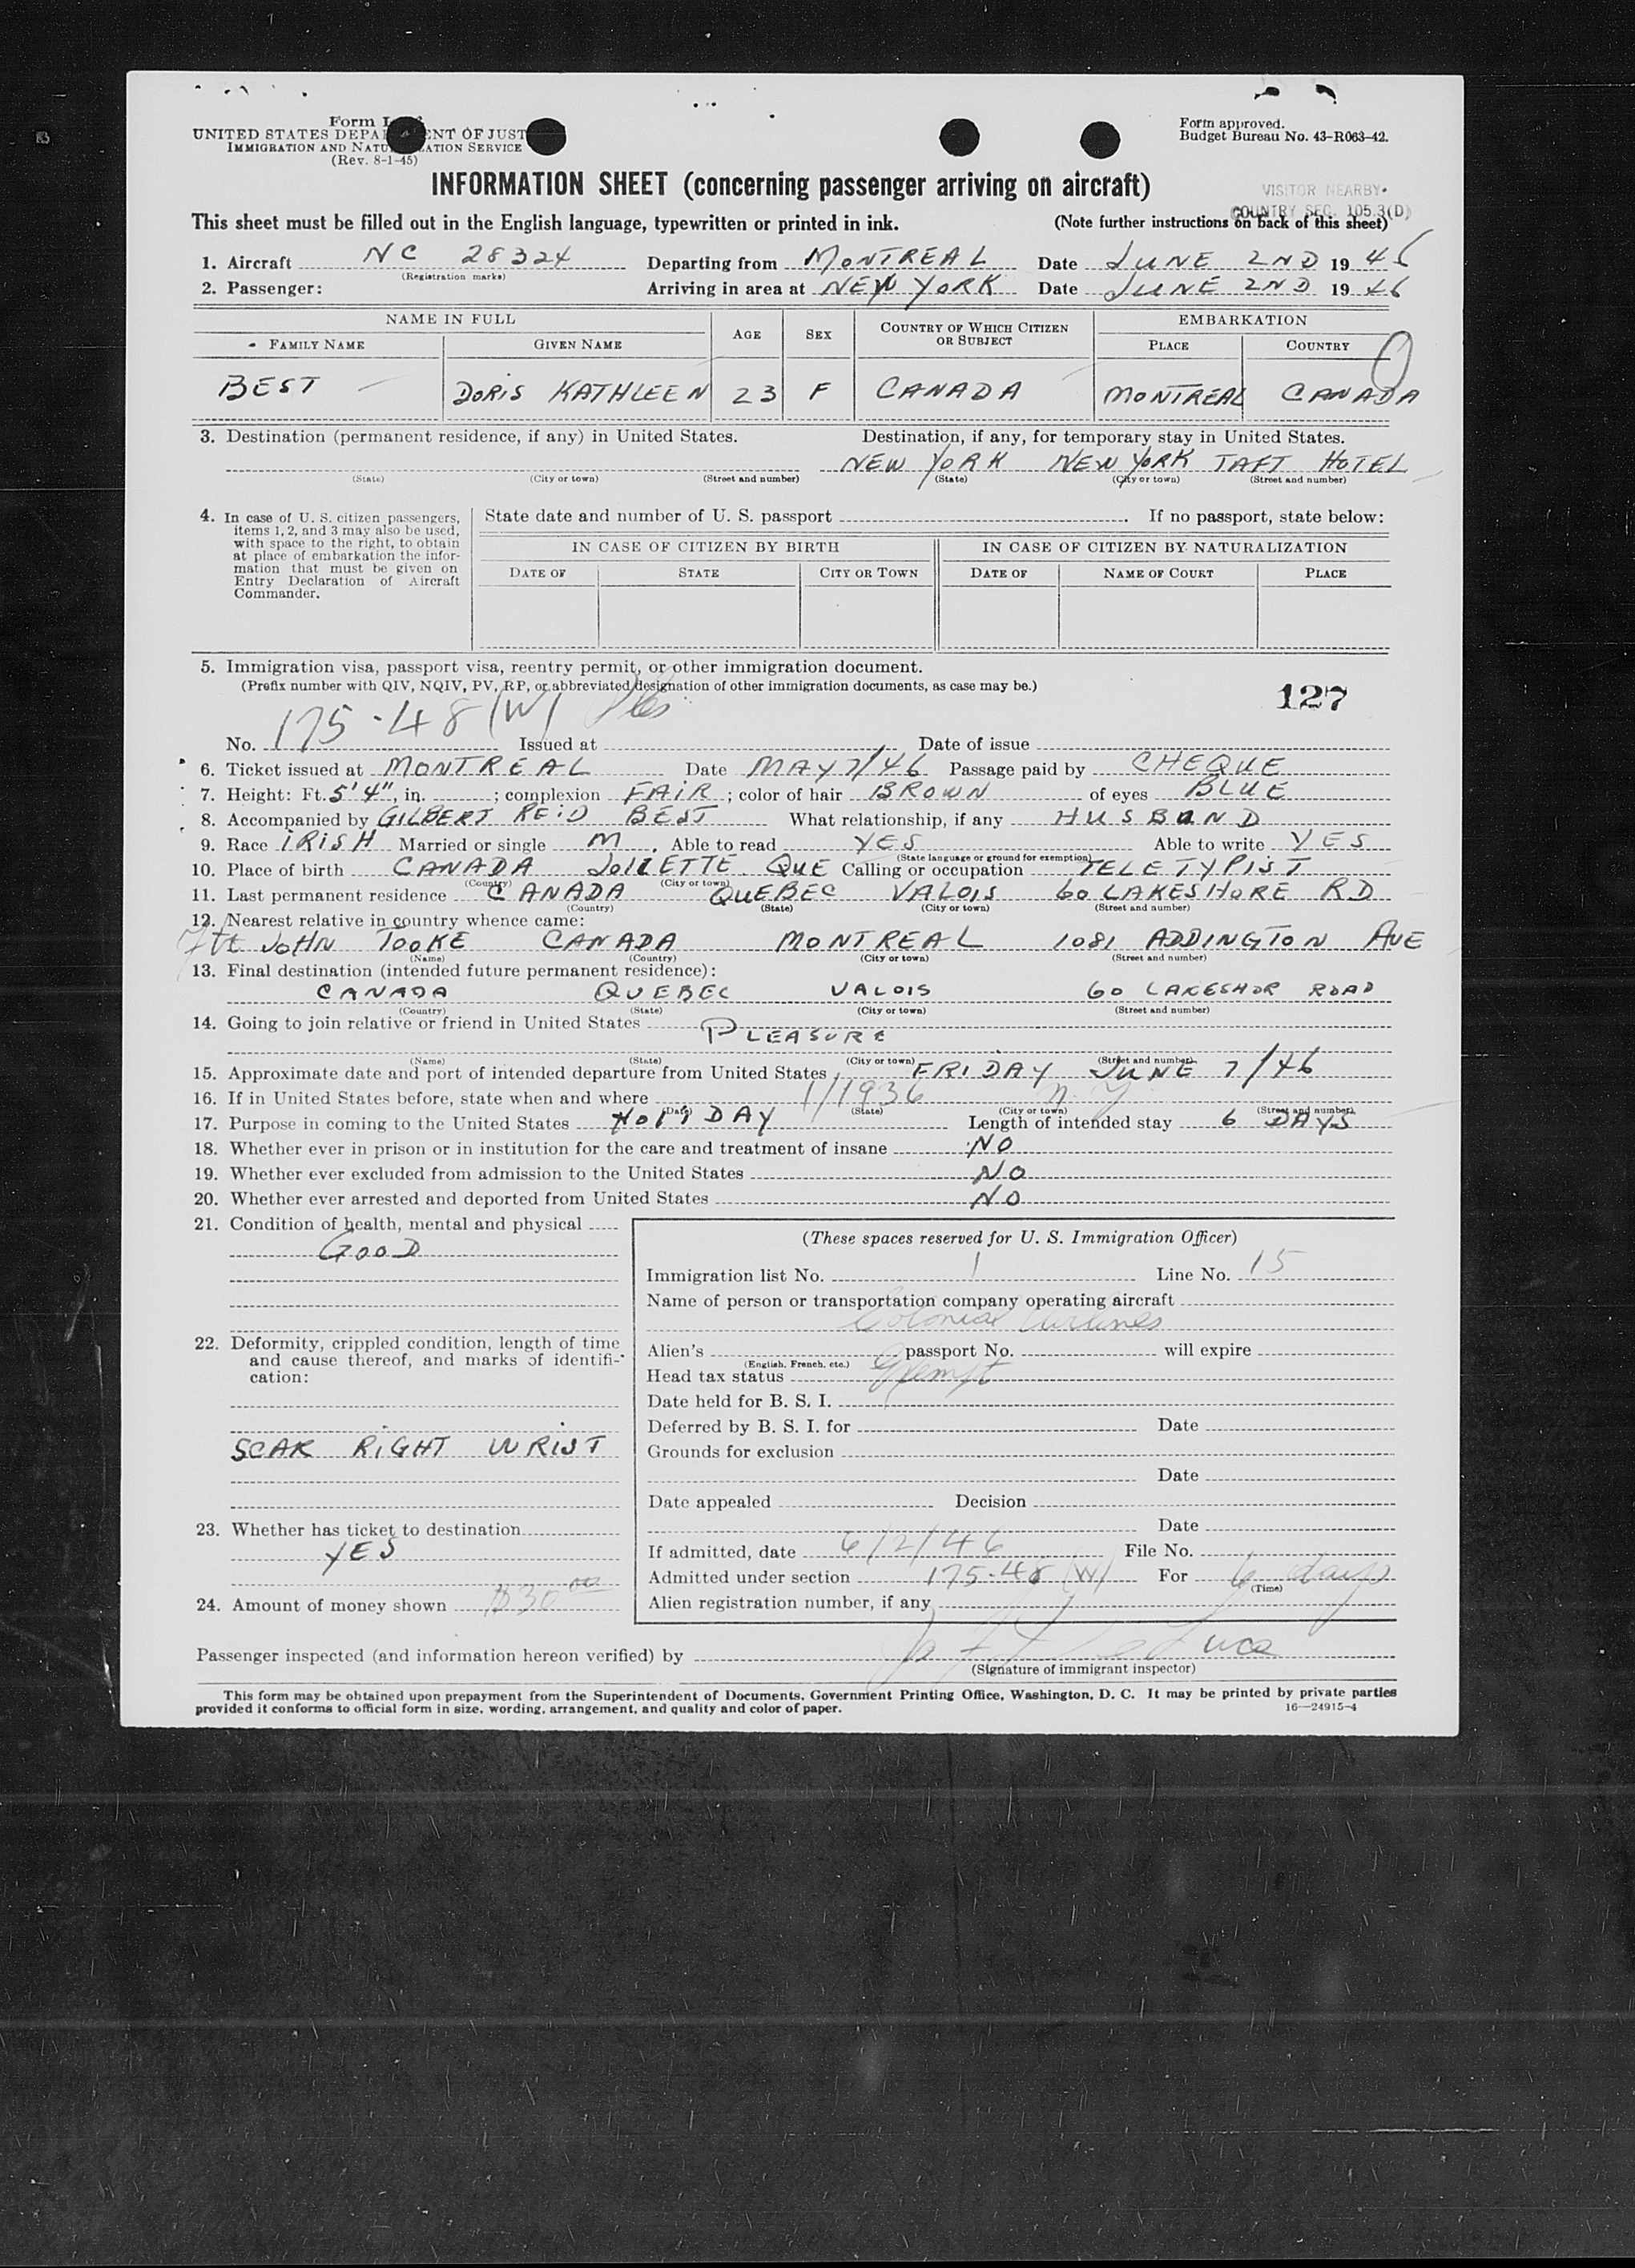 Form I-
UNITED STATES DEPA ENT OF JUST
IMMIGRATION AND NATU ATION SERVICE
(Rev. 8-1-45)
Form approved.
Budget Bureau No. 43-R063-42.
INFORMATION SHEET (concerning passenger arriving on aircraft)
VISITOR NEARBY
COUNTRY SEC. 105.3(D)
This sheet must be filled out in the English language, typewritten or printed in ink. (Note further instructions on back of this sheet)
1. Aircraft NC 28324 Departing from MONTREAL Date JUNE 2ND 1946
(Registration marks)
2. Passenger: Arriving in area at NEW YORK Date JUNE 2ND 1946
NAME IN FULL AGE SEX COUNTRY OF WHICH CITIZEN OR SUBJECT EMBARKATION
FAMILY NAME GIVEN NAME PLACE COUNTRY
BEST DORIS KATHLEEN 23 F CANADA MONTREAL CANADA
3. Destination (permanent residence, if any) in United States. Destination, if any, for temporary stay in United States.
NEW YORK NEW YORK TAFT HOTEL
(State) (City or town) (Street and number) (State) (City or town) (Street and number)
4. In case of U. S. citizen passengers, items 1, 2, and 3 may also be used, with space to the right, to obtain at place of embarkation the information that must be given on Entry Declaration of Aircraft Commander.
State date and number of U. S. passport . If no passport, state below:
IN CASE OF CITIZEN BY BIRTH IN CASE OF CITIZEN BY NATURALIZATION
DATE OF STATE CITY OR TOWN DATE OF NAME OF COURT PLACE
5. Immigration visa, passport visa, reentry permit, or other immigration document.
(Prefix number with QIV, NQIV, PV, RP, or abbreviated designation of other immigration documents, as case may be.)
127
No. 175-48(W) Issued at Date of issue
6. Ticket issued at MONTREAL Date MAY 7/46 Passage paid by CHEQUE
7. Height: Ft. 5' 4", in. ; complexion FAIR ; color of hair BROWN of eyes BLUE
8. Accompanied by GILBERT REID BEST What relationship, if any HUSBAND
9. Race IRISH Married or single M. Able to read YES Able to write YES
(State language or ground for exemption)
10. Place of birth CANADA JOLIETTE QUE Calling or occupation TELETYPIST
(Country) (City or town)
11. Last permanent residence CANADA QUEBEC VALOIS 60 LAKESHORE RD
(Country) (State) (City or town) (Street and number)
12. Nearest relative in country whence came:
JOHN TOOKE CANADA MONTREAL 1081 ADDINGTON AVE
(Name) (Country) (City or town) (Street and number)
13. Final destination (intended future permanent residence):
CANADA QUEBEC VALOIS 60 LAKESHOR ROAD
(Country) (State) (City or town) (Street and number)
14. Going to join relative or friend in United States PLEASURE
(Name) (State) (City or town) (Street and number)
15. Approximate date and port of intended departure from United States FRIDAY JUNE 7/46
16. If in United States before, state when and where 1/1936 N.Y
(Date) (State) (City or town) (Street and number)
17. Purpose in coming to the United States HOLIDAY Length of intended stay 6 DAYS
18. Whether ever in prison or in institution for the care and treatment of insane NO
19. Whether ever excluded from admission to the United States NO
20. Whether ever arrested and deported from United States NO
21. Condition of health, mental and physical
GOOD
22. Deformity, crippled condition, length of time and cause thereof, and marks of identification:
SCAR RIGHT WRIST
23. Whether has ticket to destination
YES
24. Amount of money shown $30 00
(These spaces reserved for U. S. Immigration Officer)
Immigration list No. 1 Line No. 15
Name of person or transportation company operating aircraft
Colonial Airlines
Alien's passport No. will expire
(English, French, etc.)
Head tax status Exempt
Date held for B. S. I.
Deferred by B. S. I. for Date
Grounds for exclusion
Date
Date appealed Decision
Date
If admitted, date 6/2/46 File No.
Admitted under section 175-48(W) For 6 days
(Time)
Alien registration number, if any
Passenger inspected (and information hereon verified) by
(Signature of immigrant inspector)
This form may be obtained upon prepayment from the Superintendent of Documents, Government Printing Office, Washington, D. C. It may be printed by private parties
provided it conforms to official form in size, wording, arrangement, and quality and color of paper. 16—24915-4